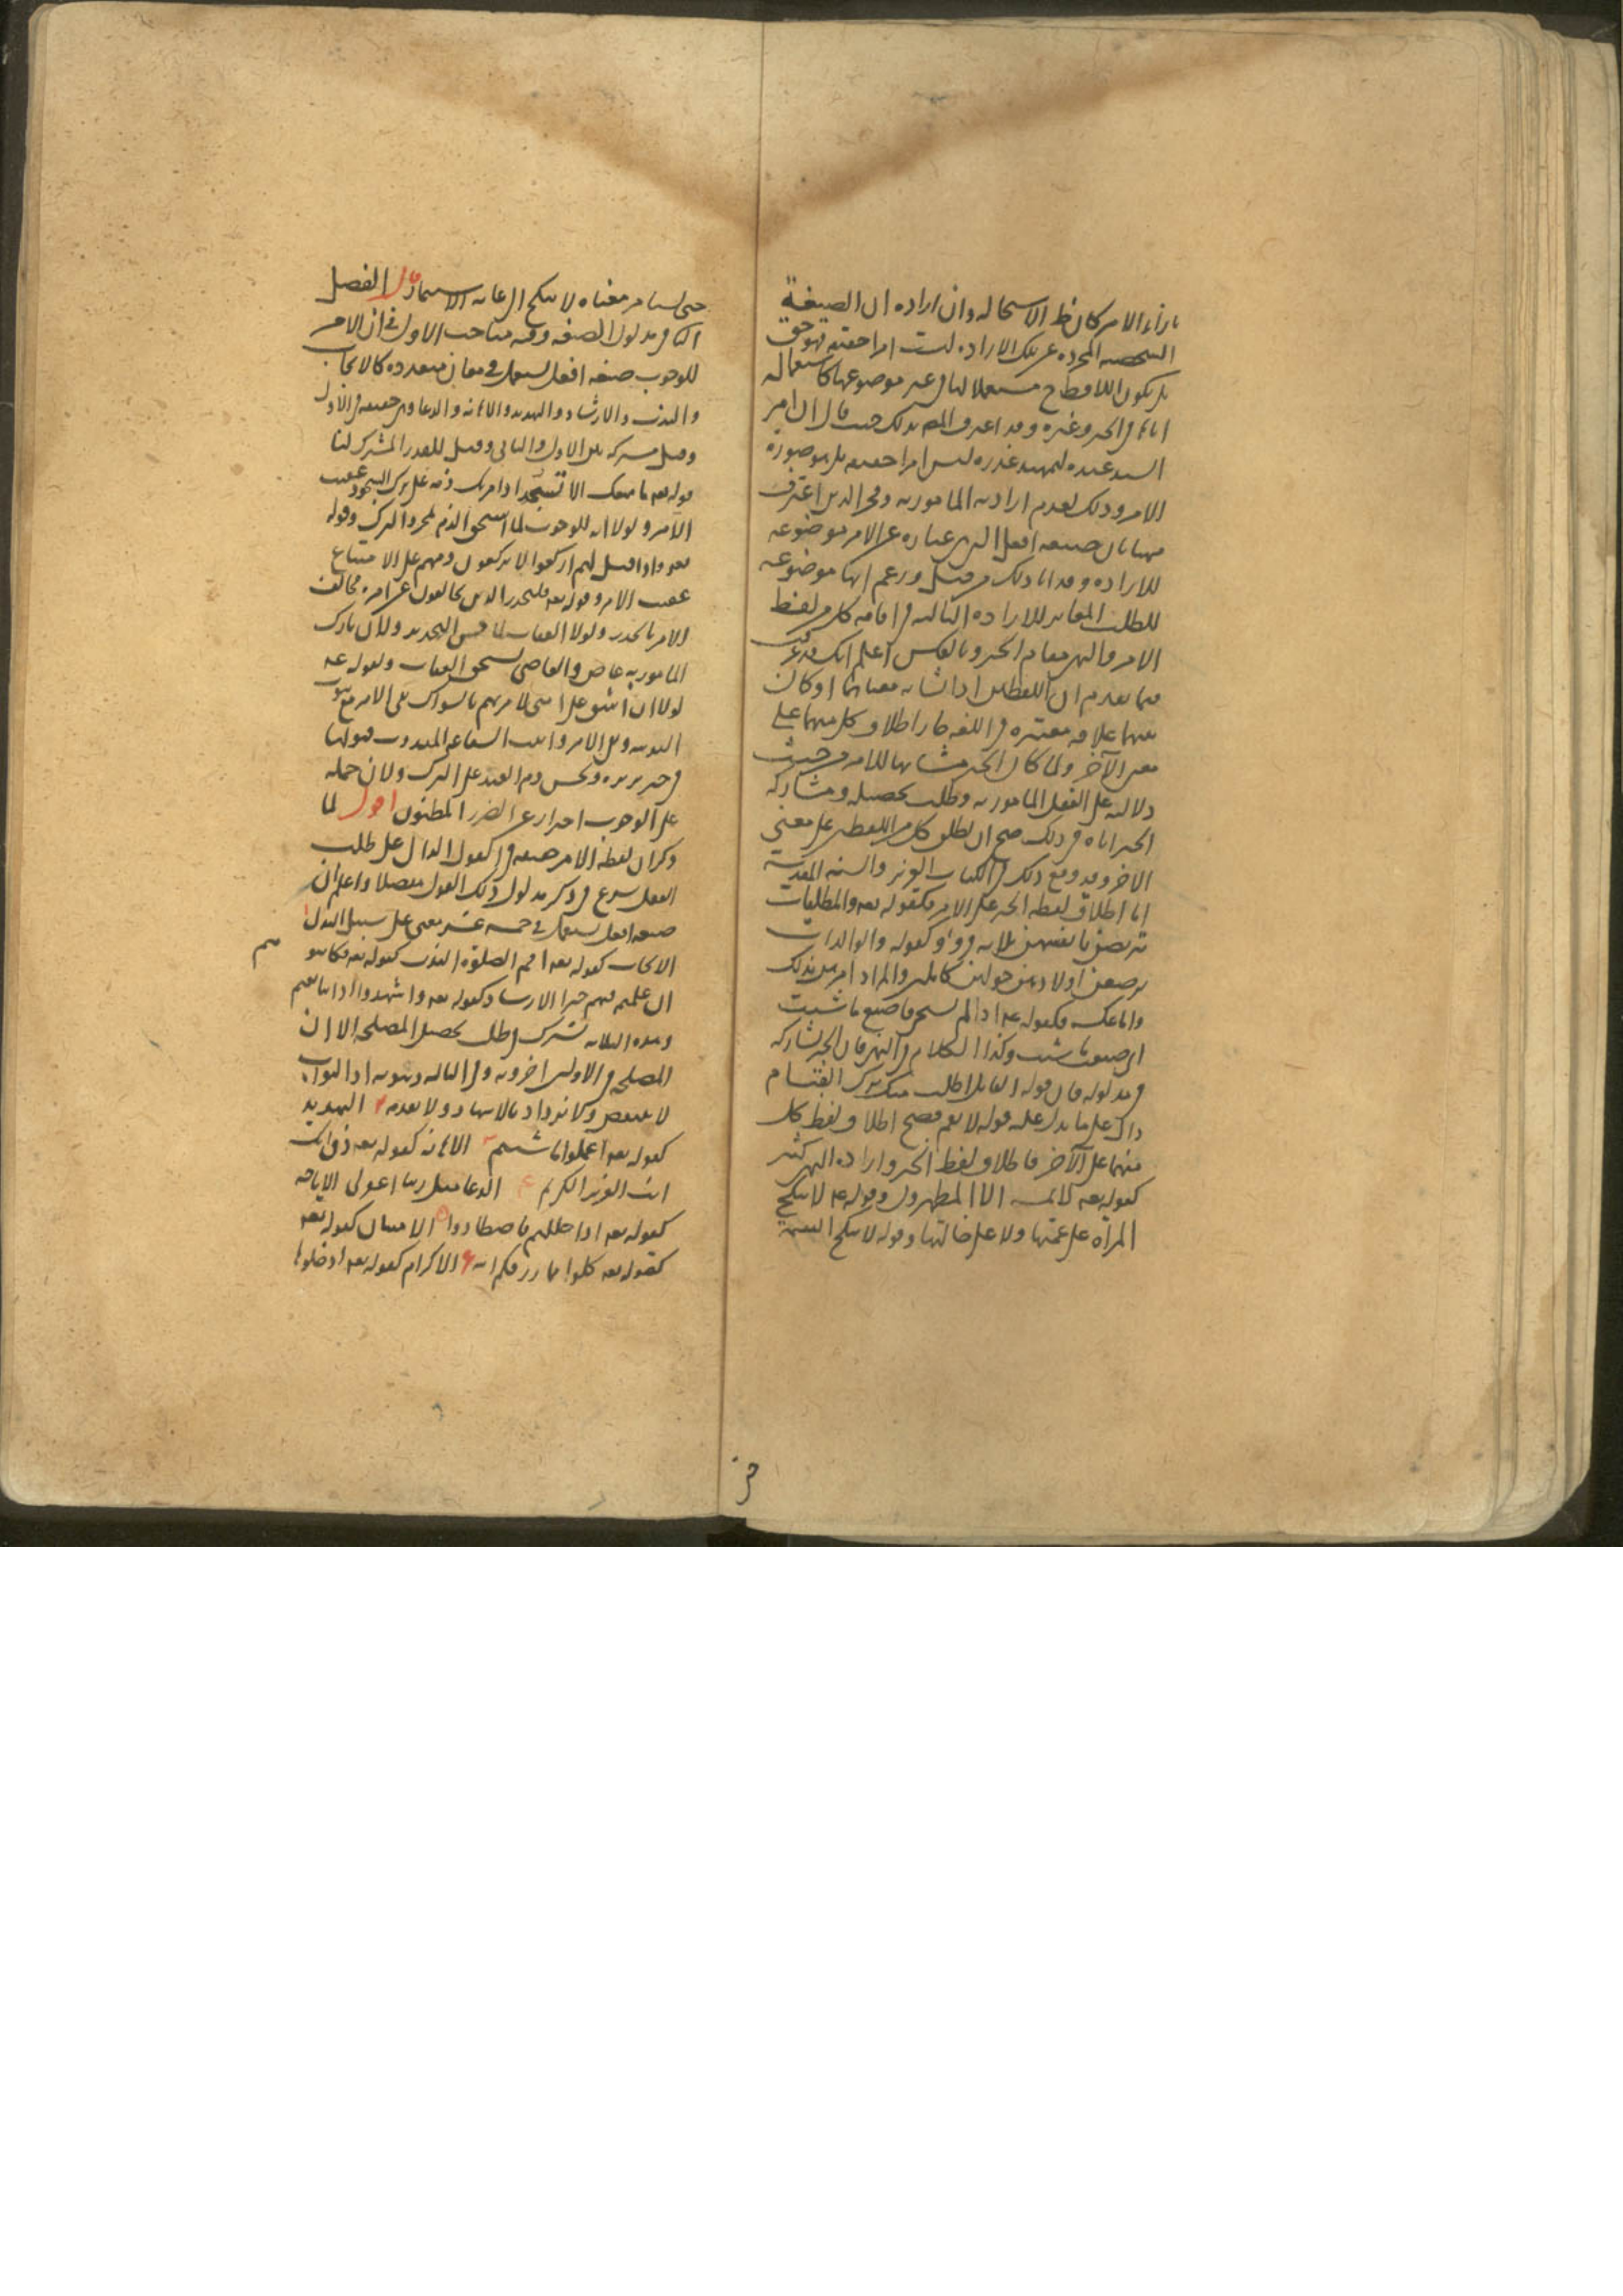 بازاء الامر كان ظ الاستحاله وان اراده ان الصيغة
الشخصيه المجرده عن تلك الاراده ليست امرا حقيقه فهو حق
بل يكون اللافظ ح مستعملا لها في غير موضوعها كاستعماله
اياها في الخبر وغيره وقد اعترف المص بذلك حيث قال ان امر
السيد عبده لتمهيد عذره ليس امرا حقيقه بل هو صورة
الامر وذلك لعدم ارادته المامور به وفخر الدين اعترف
ههنا بان صيغه افعل التي هي عباره عن الامر موضوعه
للاراده وقد انا ذلك من قبل وزعم انها موضوعه
للطلب المغاير للاراده الثالث في اقامه كل من لفظ
الامر والنهي مقام الخبر وبالعكس اعلم انك قد عرفت
فيما تقدم ان اللفظين اذا تشابه معناهما او كان
بينهما علاقه معتبره في اللغه جاز اطلاق كل منهما على
معنى الآخر ولما كان الخبر مشابها للامر من حيث
دلالته على الفعل المامور به وطلب تحصيله ومشاركه
الخبر اياه في ذلك صح ان يطلق كل من اللفظين على معنى
الاخر وقد وقع ذلك في الكتاب العزيز والسنه المقدسة
اما اطلاق لفظه الخبر على الامر فكقوله تعه والمطلقات
يتربصن بانفسهن ثلاثه قروء وكقوله والوالدات
يرضعن اولادهن حولين كاملين والمراد امرهن بذلك
واما عكسه فكقوله عه اذا لم تستحي فاصنع ما شيت
اي صنعت ما شيت وكذا الكلام في النهي فان الخبر يشاركه
في مدلوله فان قوله القايل اطلب منك ترك القيام
دال على ما يدل عليه قوله لا تقم فصح اطلاق لفظ كل
منهما على الآخر فاطلاق لفظ الخبر واراده النهي كثير
كقوله تعه لا يمسه الا المطهرون وقوله عه لا تنكح
المرآه على عمتها ولا على خالتها وقوله لا تنكح اليتيمة
حتى تستامر معناه لا تنكح الى غايه الاستيمار قال الفصل
الثاني في مدلول الصيغه وفيه مباحث الاول في ان الامر
للوجوب صيغه افعل تستعمل في معان متعدده كالايجاب
والندب والارشاد والتهديد والاهانه والدعا وهي حقيقه في الاول
وقيل مشتركه بين الاول والثاني وقيل للقدر المشترك لنا
قوله تعه ما منعك الا تسجد اذ امرتك ذمه على ترك السجود عقيب
الامر ولولا انه للوجوب لما استحق الذم لمجرد الترك وقوله
تعه واذا قيل لهم اركعوا لا يركعون ذمهم على الامتناع
عقيب الامر وقوله تعه فليحذر الذين يخالفون عن امره مخالف
الامر بالحذر ولولا العقاب لما حسن التحذير ولان تارك
المامور به عاص والعاصي يستحق العقاب ولقوله عه
لولا ان اشق على امتي لامرتهم بالسواك نفى الامر مع ثبوت
الندبيه ونفى الامر واثبت الشفاعه المندوب قبولها
في خبر بريره ويحسن ذم العبد على الترك ولان حمله
على الوجوب احتراز عن الضرر المظنون اقول لما
ذكر ان لفظه الامر حقيقه في القول الدال على طلب
الفعل شرع في ذكر مدلول ذلك القول مفصلا واعلم ان
صيغه افعل تستعمل في خمسه عشر معنى على سبيل البدل ا
الايجاب كقوله تعه اقم الصلوة الندب كقوله تعه فكاتبو هم
ان علمتم فيهم خيرا الارشاد كقوله تعه واشهدوا اذا تبايعتم
وهذه الثلاثه تشترك في طلب تحصيل المصلحه الا ان
المصلحه في الاولين اخرويه وفي الثالثه دنيويه اذ الثواب
لا ينقص ولا يزداد بالاشهاد ولا بعدمه ٢ التهديد
كقوله تعه اعملوا ما شيتم ٣ الاهانه كقوله تعه ذق انك
انت العزيز الكريم ٤ الدعا مثل ربنا اغفر لي الاباحه
كقوله تعه اذا حللتم فاصطادوا ٥ الامتنان كقوله تعه
كقوله تعه كلوا مما رزقكم الله ٦ الاكرام كقوله تعه ادخلوها